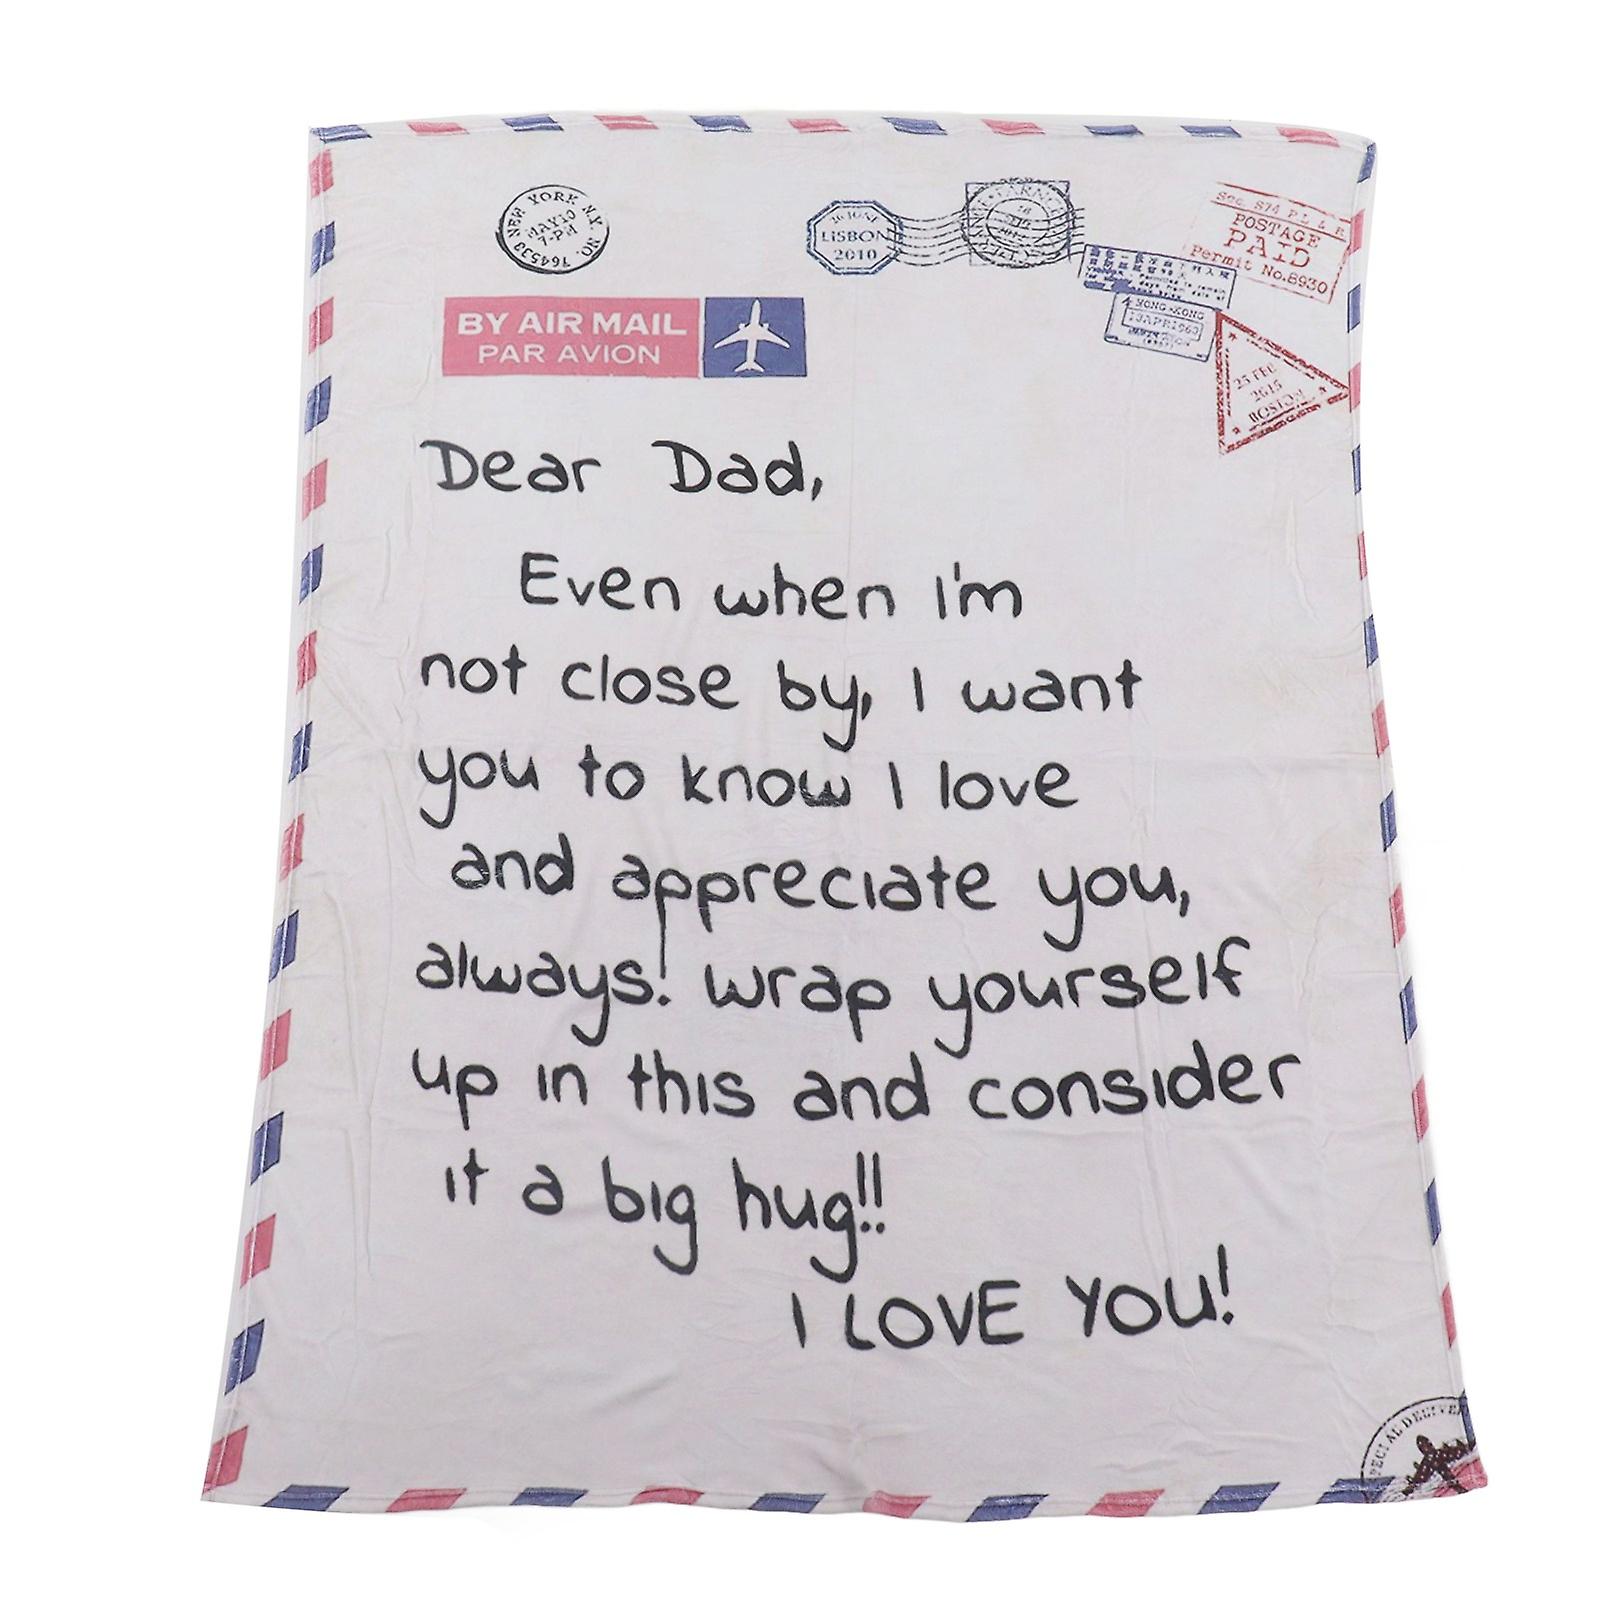 NEW YORK N.Y.
MAY 10
7-PM
NO. 764533
LISBON
2010
Sec. 874 P.L & R
POSTAGE
PAID
Permit No.8930
HONG-KONG
13APR1963
25 FEB
2615
BOSTON
BY AIR MAIL
PAR AVION
Dear Dad,
Even when I'm
not close by, I want
you to know I love
and appreciate you,
always! wrap yourself
up in this and consider
it a big hug!!
I LOVE YOU!